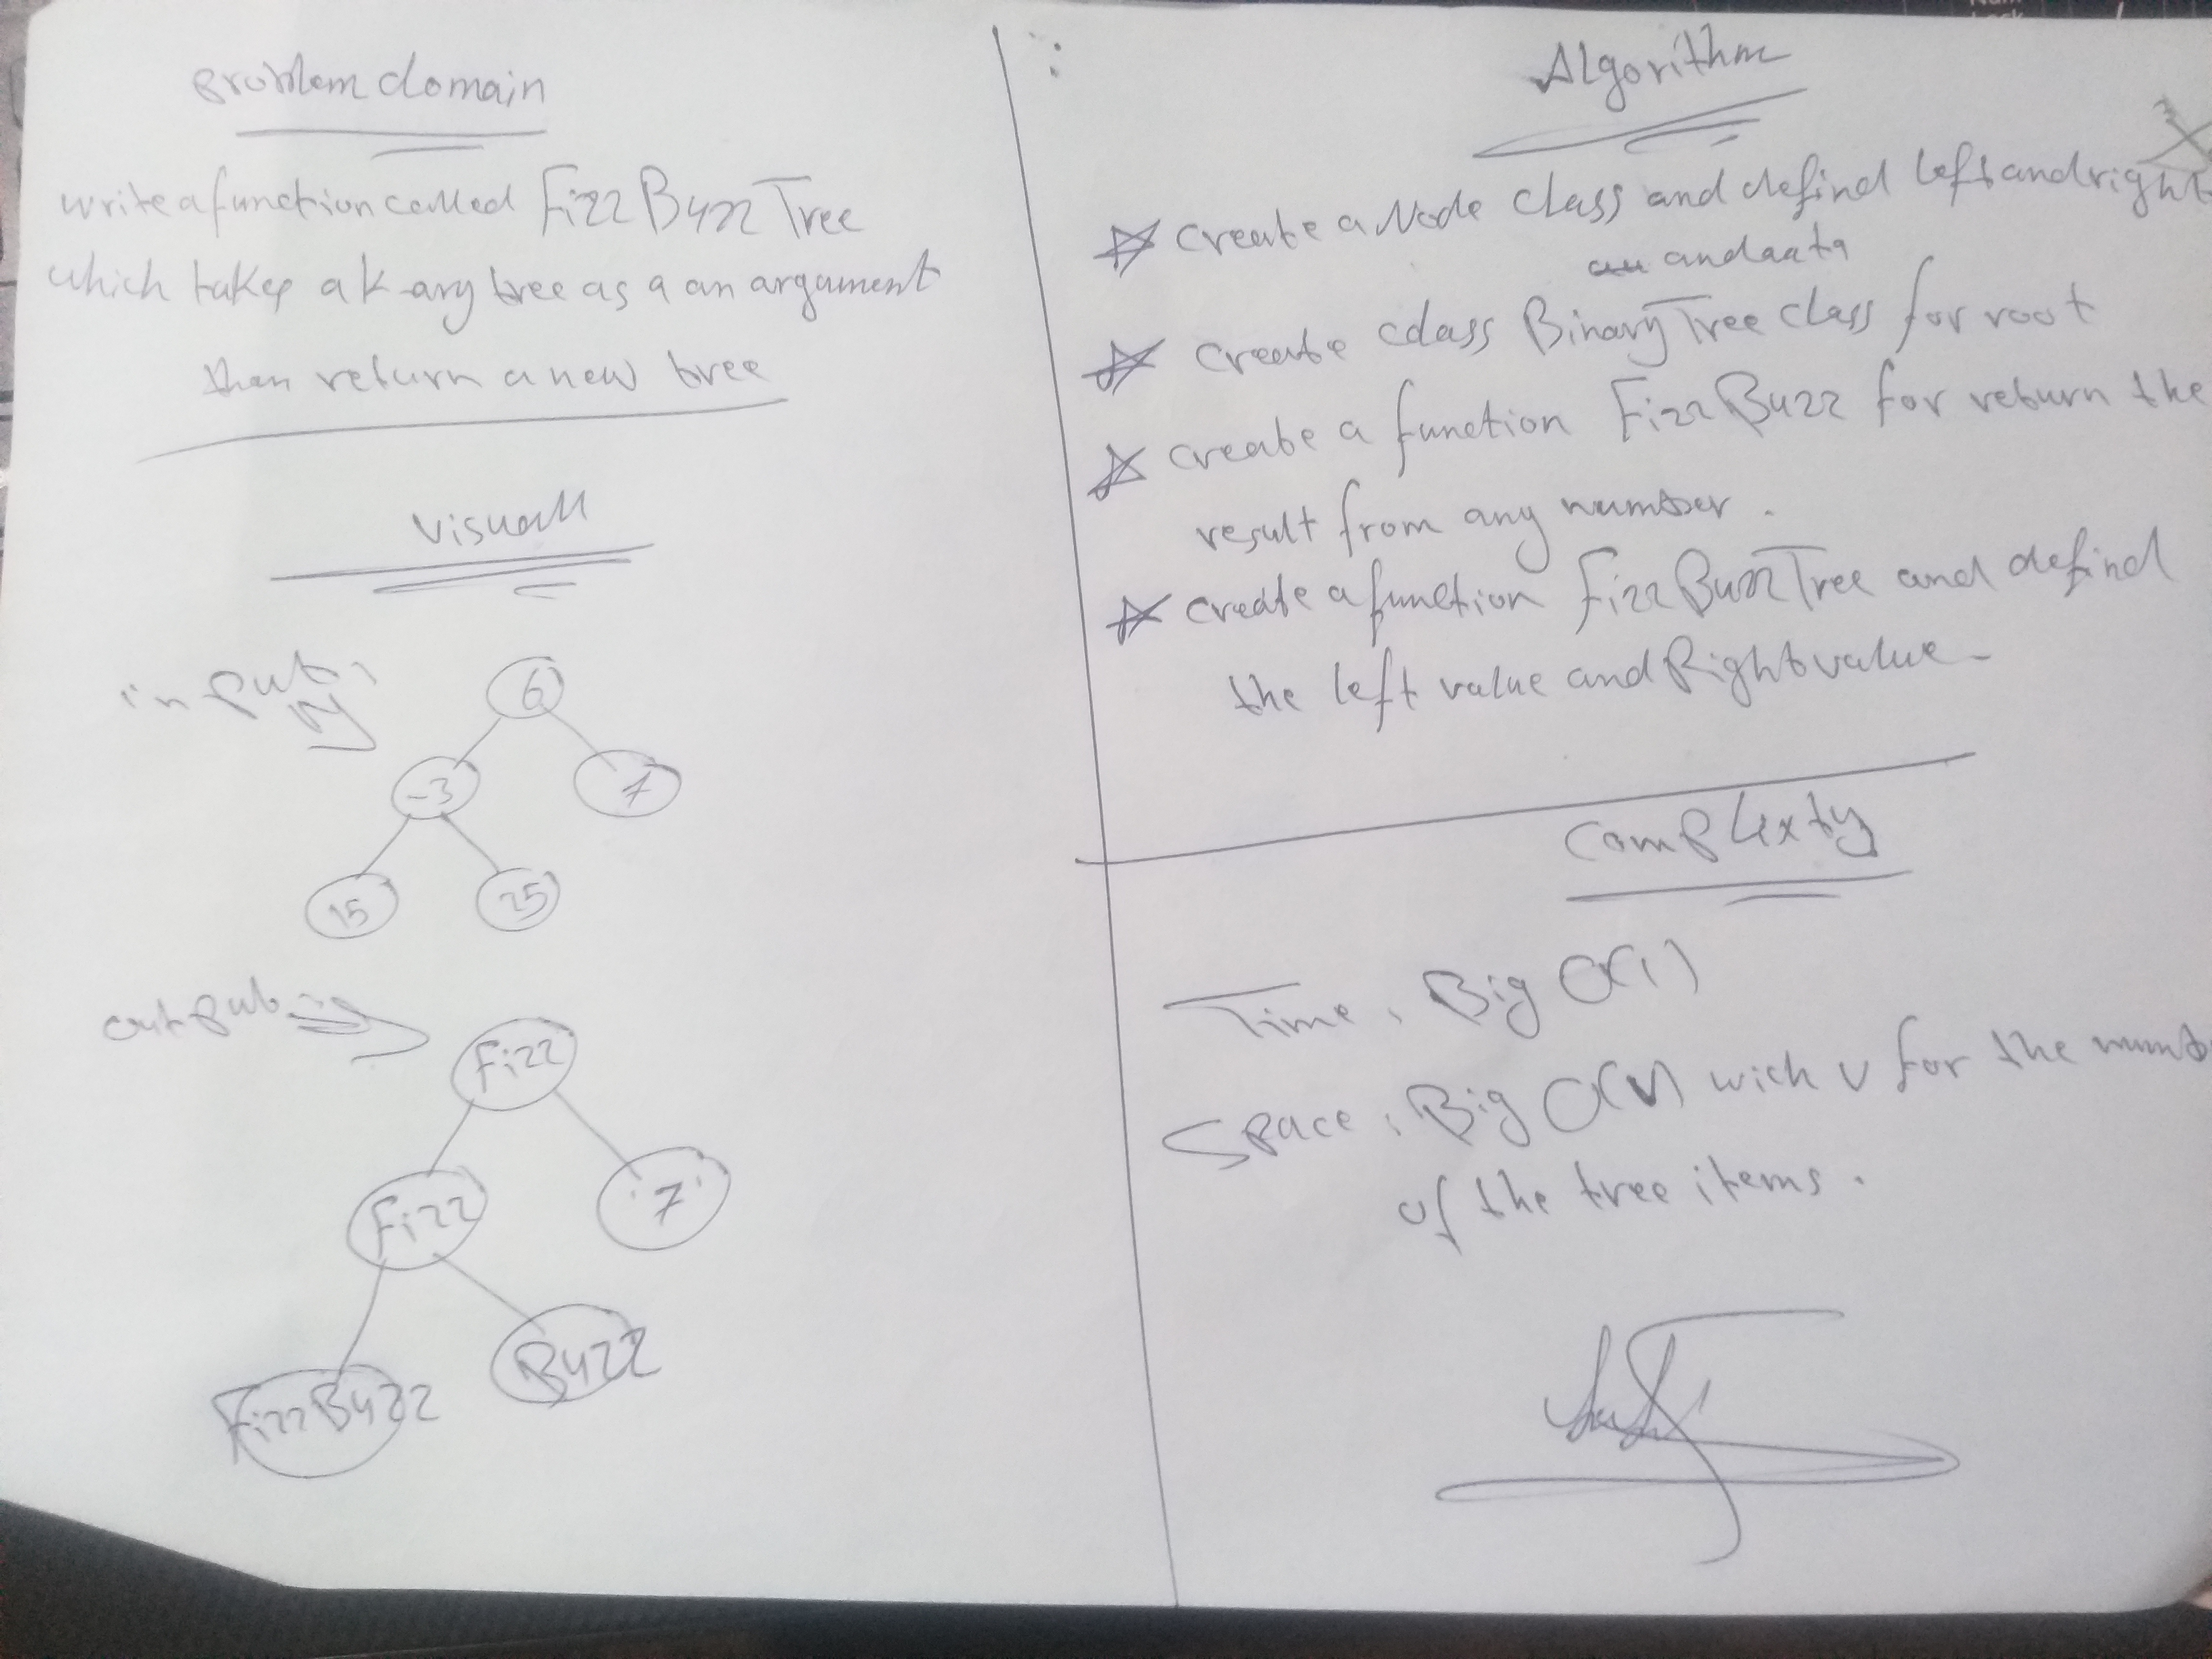 Problem domain
write a function called FizzBuzzTree
which takes a k-ary tree as a an argument
then return a new tree
visuall
input
6
-3
7
15
25
output
Fizz
Fizz
'7'
FizzBuzz
Buzz
Algorithm
create a Node class and defind left and right
and data
create cdass BinaryTree class for root
create a function FizzBuzz for return the
result from any number.
create a function FizzBuzzTree and defind
the left value and Right value-
Complixty
Time: Big O(1)
Space: Big O(V) with V for the numb
of the tree items.